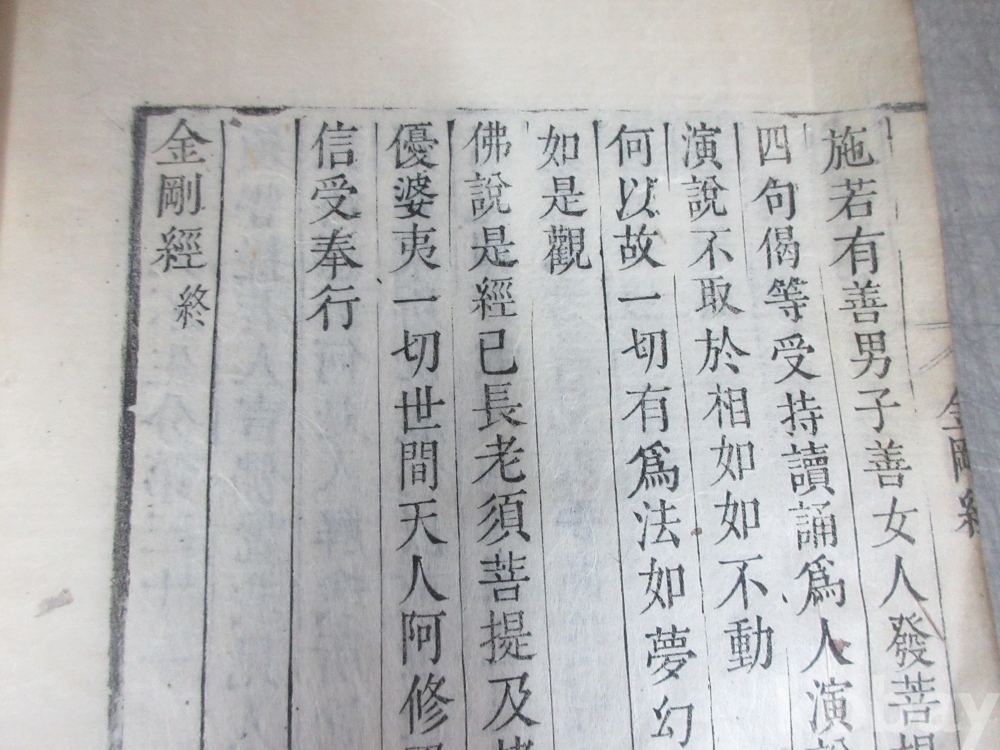 施若有善男子善女人發菩提
四句偈等受持讀誦爲人演
演說不取於相如如不動
何以故一切有爲法如夢幻
如是觀
佛說是經已長老須菩提及
優婆夷一切世間天人阿修
信受奉行
金剛經終
金剛經